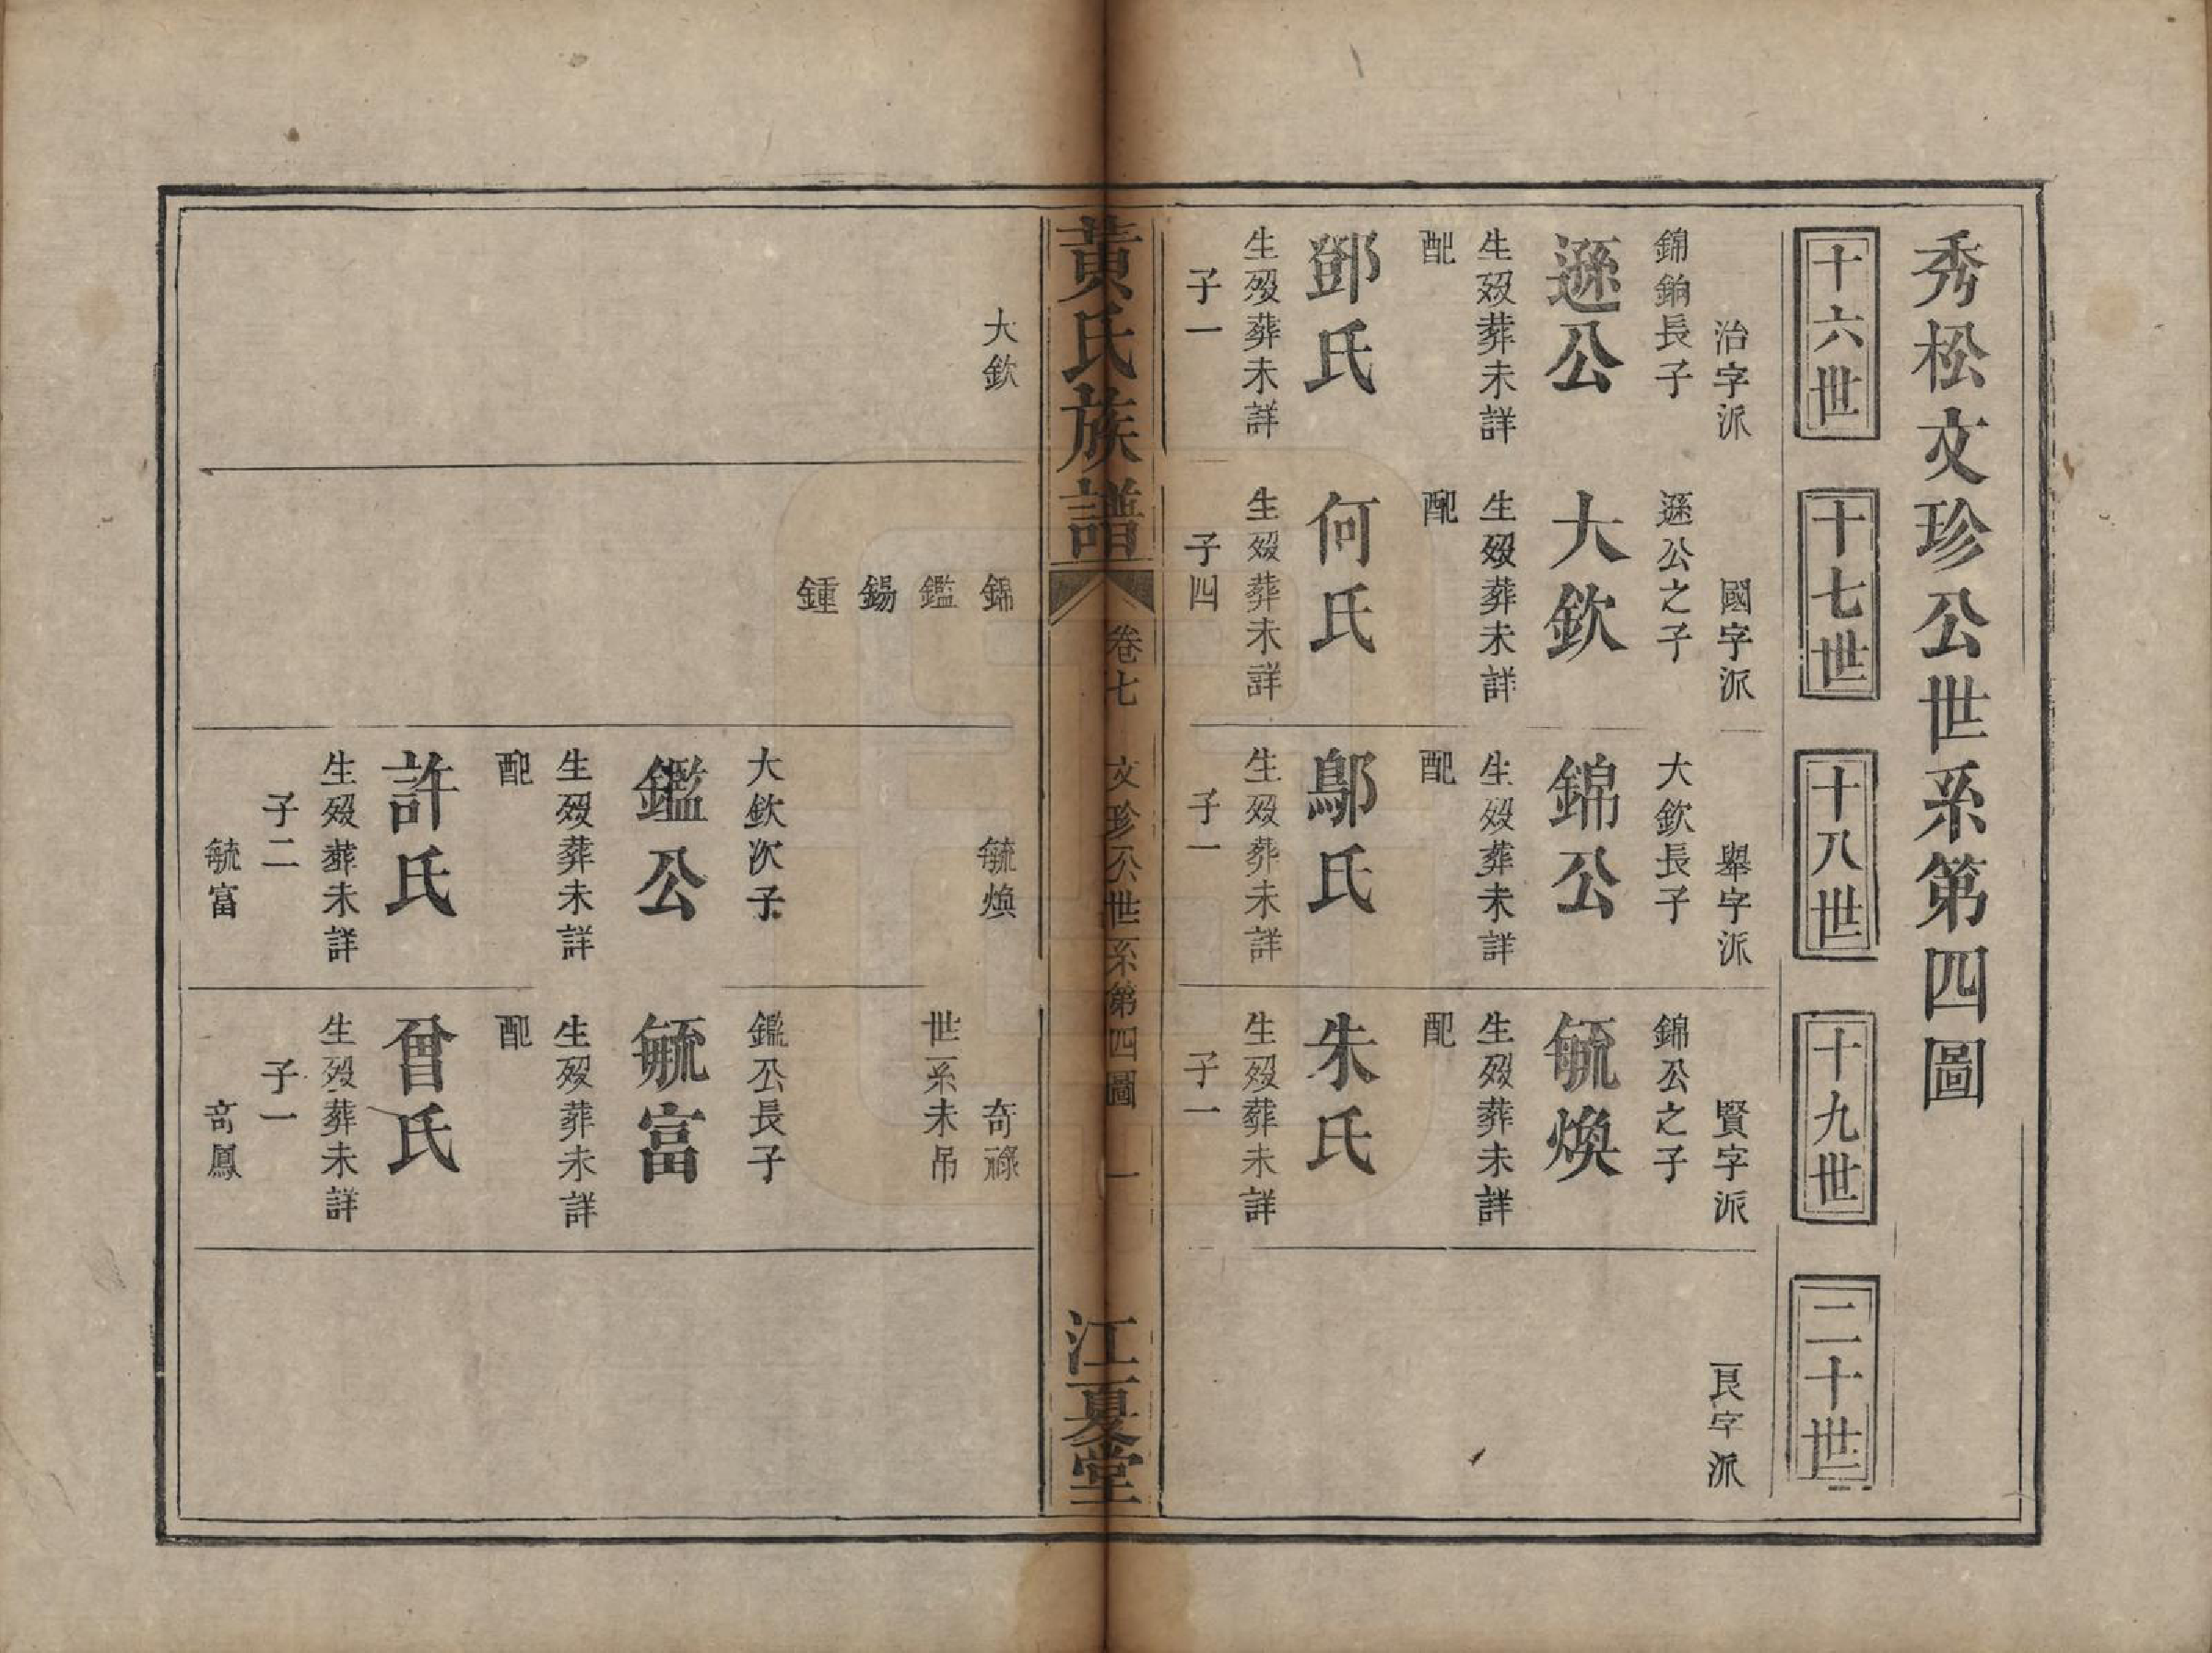 秀松文珍公世系第四圖
十六世
十七世
十八世
十九世
二十世
治字派
國字派
舉字派
賢字派
良字派
錦鉤長子
遜公
生歿葬未詳
配
鄧氏
生歿葬未詳
子一
遜公之子
大欽
生歿葬未詳
配
何氏
生歿葬未詳
子四
大欽長子
錦公
生歿葬未詳
配
鄔氏
生歿葬未詳
子一
錦公之子
毓煥
生歿葬未詳
配
朱氏
生歿葬未詳
子一
黃氏族譜
卷七
文珍公世系第四圖
一
江夏堂
大欽
錦
鑑
錫
鍾
毓煥
奇祿
世系未吊
大欽次子
鑑公
生歿葬未詳
配
許氏
生歿葬未詳
子二
毓富
鑑公長子
毓富
生歿葬未詳
配
曾氏
生歿葬未詳
子一
奇鳳